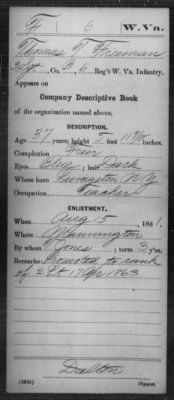 F 6 W. Va.
Thomas T. Freeman
Sgt., Co. B, 6 Reg't W. Va. Infantry.
Appears on
Company Descriptive Book
of the organization named above.
DESCRIPTION.
Age 37 years; height 5 feet inches.
Complexion Fair
Eyes Blue; hair Dark
Where born Livingston N.Y.
Occupation Teacher
ENLISTMENT.
When Aug 15, 1861.
Where Mannington
By whom Jones; term 3 y'rs.
Remarks: Promoted to rank
of 2 Lt 17 Apr 1863
Dalton
Copyist.